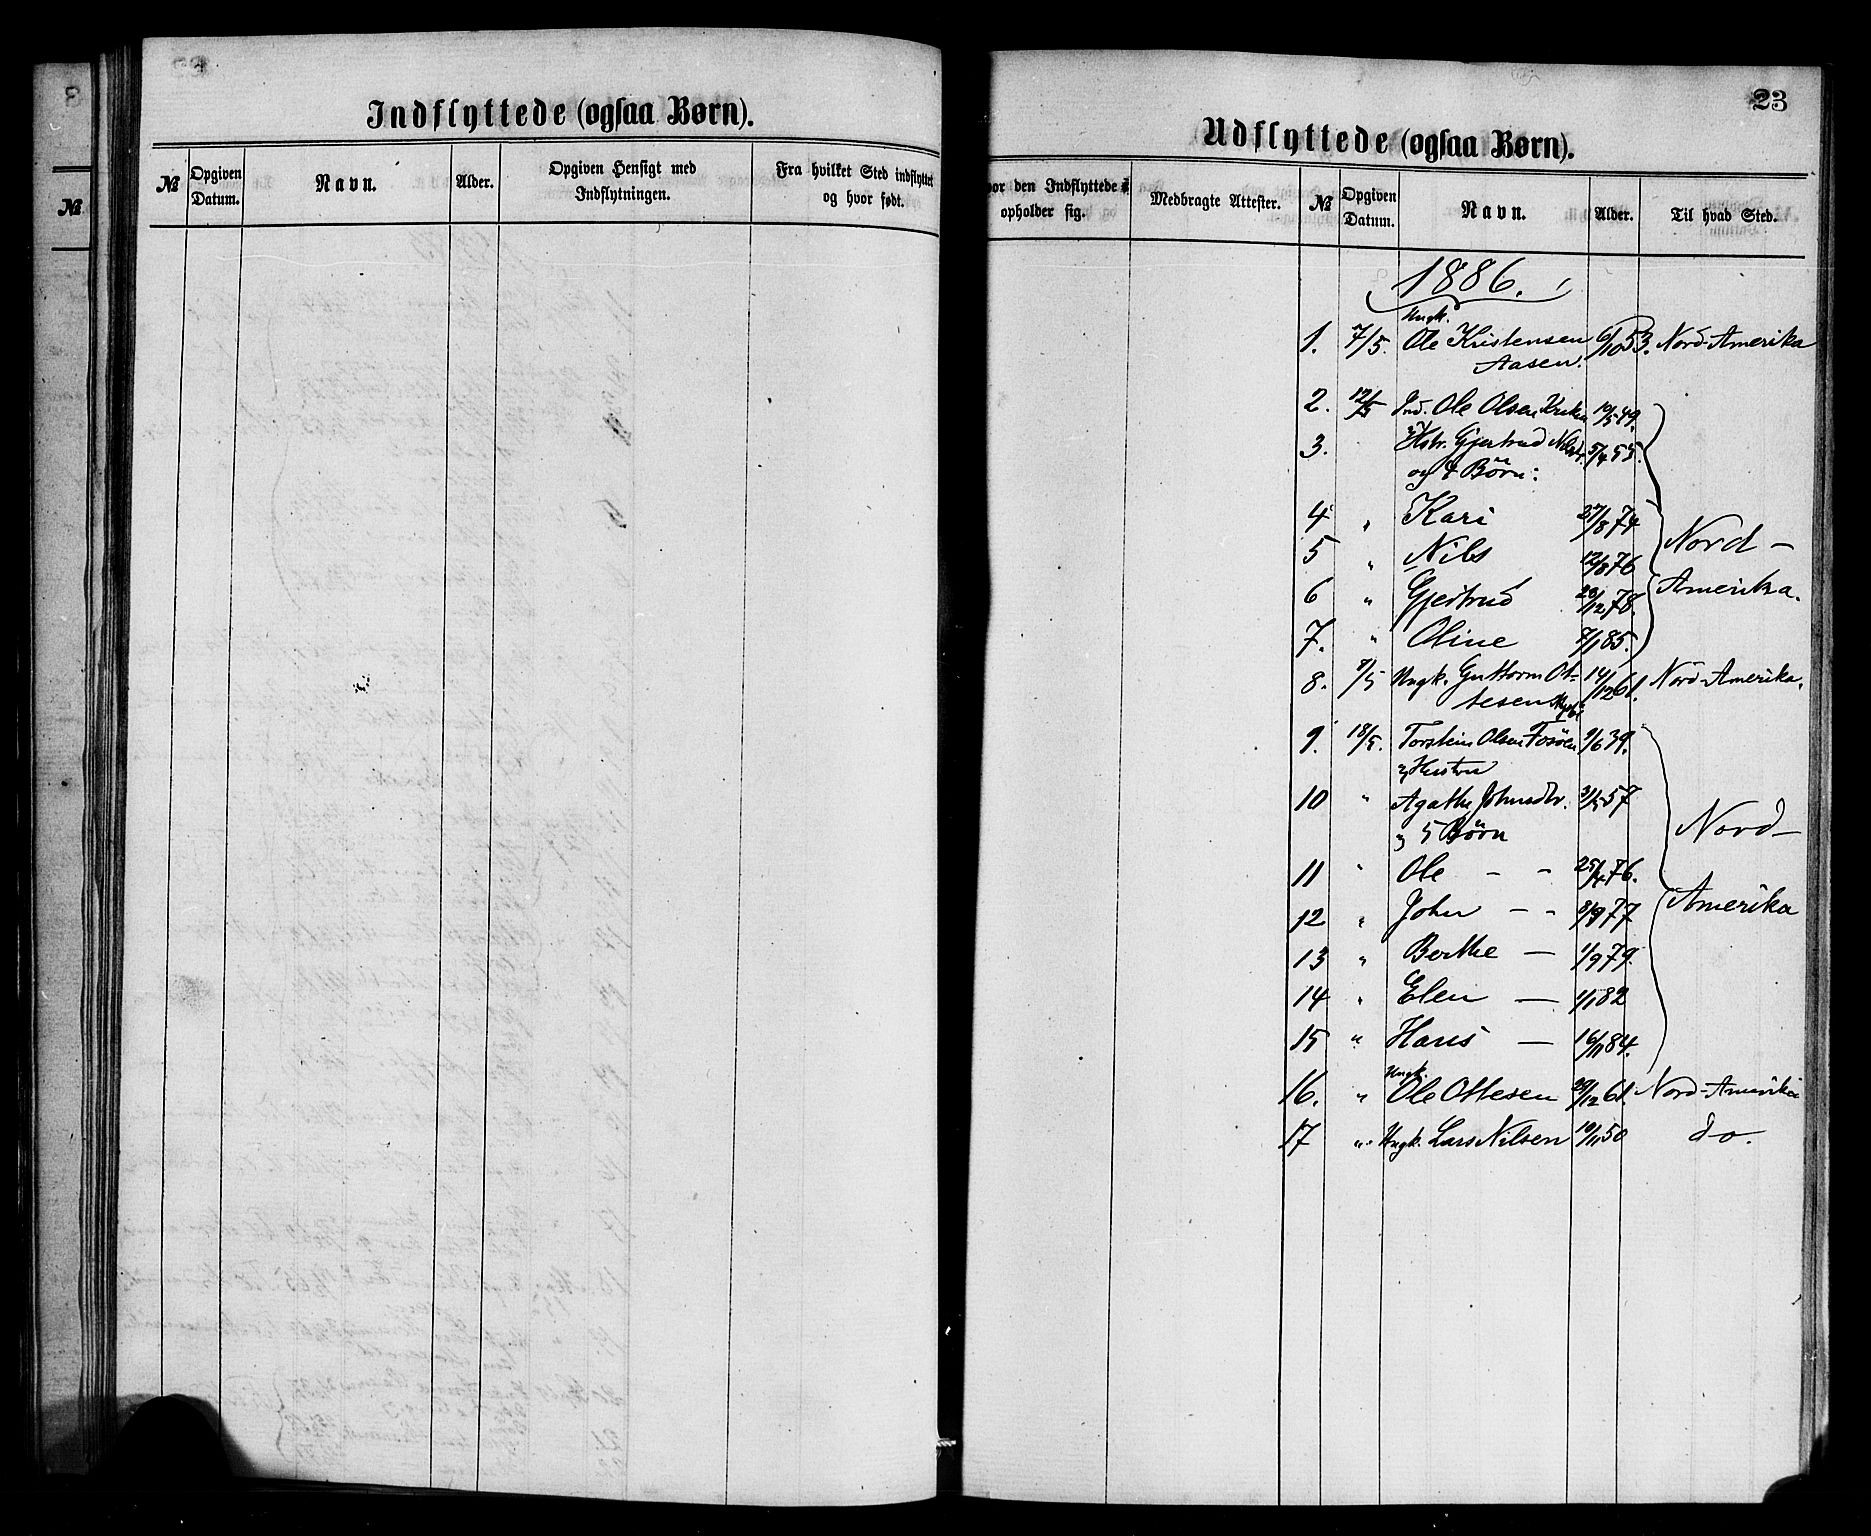 Indflyttede (ogsaa Børn).
№ Opgiven Datum. Navn. Alder. Opgiven Hensigt med Indflytningen. Fra hvilket Sted indflyttet og hvor født.
23
Udflyttede (ogsaa Børn).
vor den Indflyttede opholder sig. Medbragte Attester. № Opgiven Datum. Navn. Alder. Til hvad Sted.
№
1886.
Ungk.
1. 7/5. Ole Kristensen 6/10 53. Nord-Amerika
Aasen.
2. 12/5 Ind. Ole Olsen 10/5 49.
3. Hstr. Gjertrud Nilsdr. 5/4 55.
og 4 Börn:
4 " Kari 27/8 74
5 " Nils 12/8 76
Nord-
6 " Gjertrud 28/12 78.
Amerika.
7. " Oline 7/1 85.
8. 7/5 Ungk. Guttorm Ot- 14/12 61. Nord-Amerika.
tesen
9. 18/5. Torstein Olsen Fosöen 9/6 39.
& Hustru
10 " Agathe Johnsdtr. 3/5 57
& 5 Börn
Nord-
11 " Ole - - 25/4 76.
Amerika
12 " John - - 8/9 77
13 " Berthe - 1/9 79.
14 " Elen - 1/1 82
15 " Hans - 16/11 84.
Ungk.
16. " Ole Ottesen 29/12 61. Nord-Amerika
17 " Ungk. Lars Nilsen 10/11 50 do.